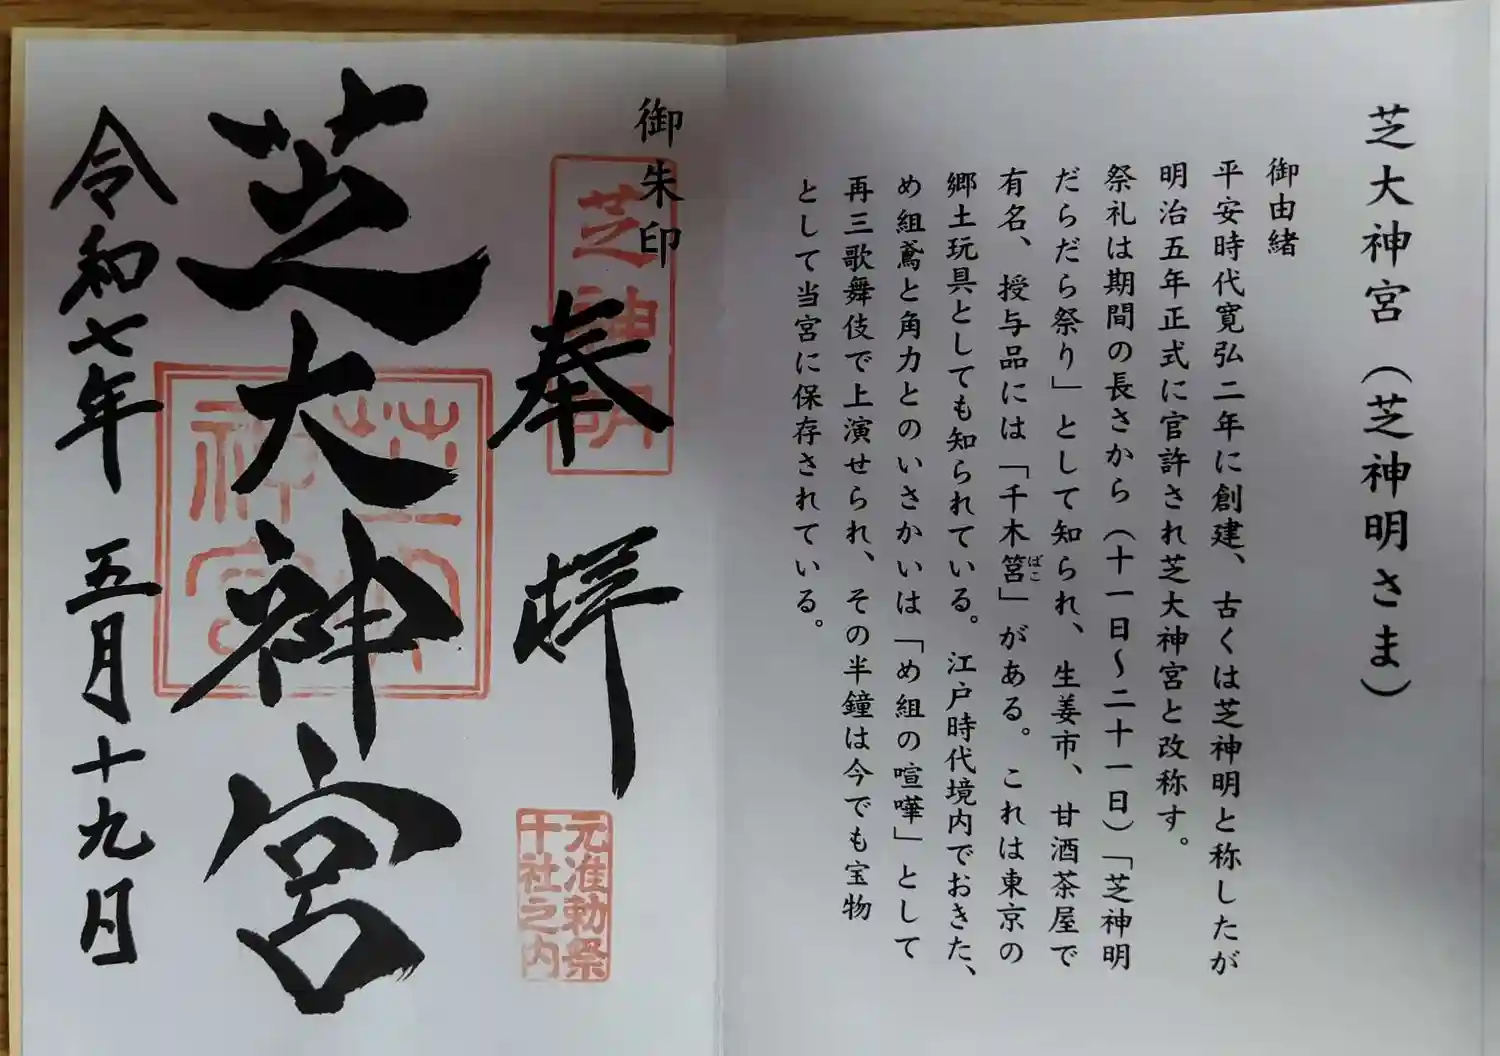 芝大神宮（芝神明さま）
御由緒
平安時代寛弘二年に創建、古くは芝神明と称したが
明治五年正式に官許され芝大神宮と改称す。
祭礼は期間の長さから（十一日〜二十一日）「芝神明
だらだら祭り」として知られ、生姜市、甘酒茶屋で
有名、授与品には「千木筥」がある。これは東京の
ばこ
郷土玩具としても知られている。江戸時代境内でおきた、
め組鳶と角力とのいさかいは「め組の喧嘩」として
再三歌舞伎で上演せられ、その半鐘は今でも宝物
として当宮に保存されている。
御朱印
芝神明
奉拝
元准勅祭
十社之内
芝大神宮
芝大
神宮
令和七年五月十九日